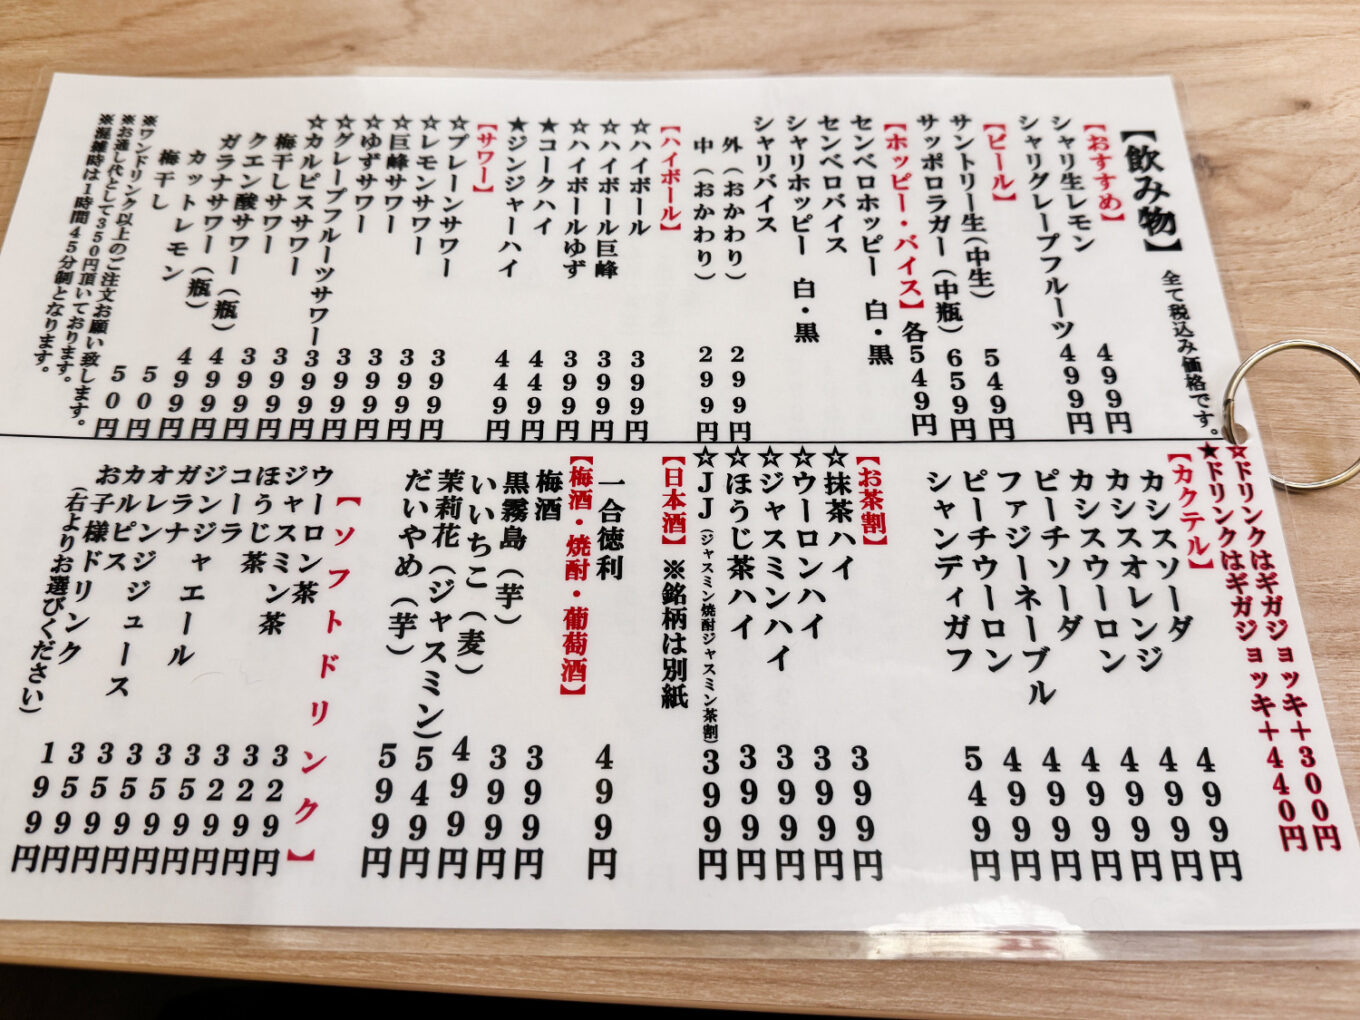 【飲み物】 全て税込み価格です。
【おすすめ】
シャリ生レモン 499円
シャリグレープフルーツ 499円
【ビール】
サントリー生(中生) 549円
サッポロラガー(中瓶) 659円
【ホッピー・バイス】各549円
センベロホッピー 白・黒
センベロバイス
シャリホッピー 白・黒
シャリバイス
外(おかわり) 299円
中(おかわり) 299円
【ハイボール】
☆ハイボール 399円
☆ハイボール巨峰 399円
☆ハイボールゆず 399円
★コークハイ 449円
★ジンジャーハイ 449円
【サワー】
☆プレーンサワー 399円
☆レモンサワー 399円
☆巨峰サワー 399円
☆ゆずサワー 399円
☆グレープフルーツサワー 399円
☆カルピスサワー 399円
梅干しサワー 399円
クエン酸サワー 499円
ガラナサワー(瓶) 499円
カットレモン 50円
梅干し 50円
※ワンドリンク以上のご注文お願い致します。
※お通し代として350円頂いております。
※混雑時は1時間45分制となります。
☆ドリンクはギガジョッキ+300円
★ドリンクはギガジョッキ+440円
【カクテル】
カシスソーダ 499円
カシスオレンジ 499円
カシスウーロン 499円
ピーチソーダ 499円
ファジーネーブル 499円
ピーチウーロン 499円
シャンディガフ 549円
【お茶割】
☆抹茶ハイ 399円
☆ウーロンハイ 399円
☆ジャスミンハイ 399円
☆ほうじ茶ハイ 399円
☆JJ(ジャスミン焼酎ジャスミン茶割) 399円
【日本酒】 ※銘柄は別紙
一合徳利 499円
【梅酒・焼酎・葡萄酒】
梅酒 399円
黒霧島(芋) 399円
いいちこ(麦) 499円
茉莉花(ジャスミン) 549円
だいやめ(芋) 599円
【ソフトドリンク】
ウーロン茶 329円
ジャスミン茶 329円
ほうじ茶 329円
コーラ 359円
ジンジャエール 359円
ガラナ 359円
オレンジジュース 359円
カルピス 359円
お子様ドリンク 199円
(右よりお選びください)